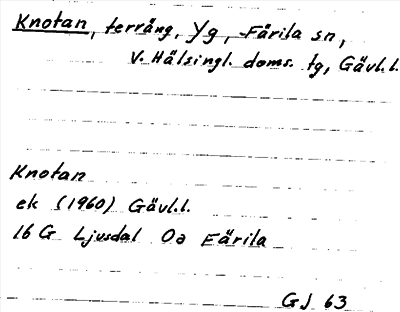 Knotan, terräng, Yg, Färila sn,
V. Hälsingl. doms. tg, Gävl.l.
Knotan
ek (1960) Gävl.l.
16 G Ljusdal Oa Färila
GJ 63